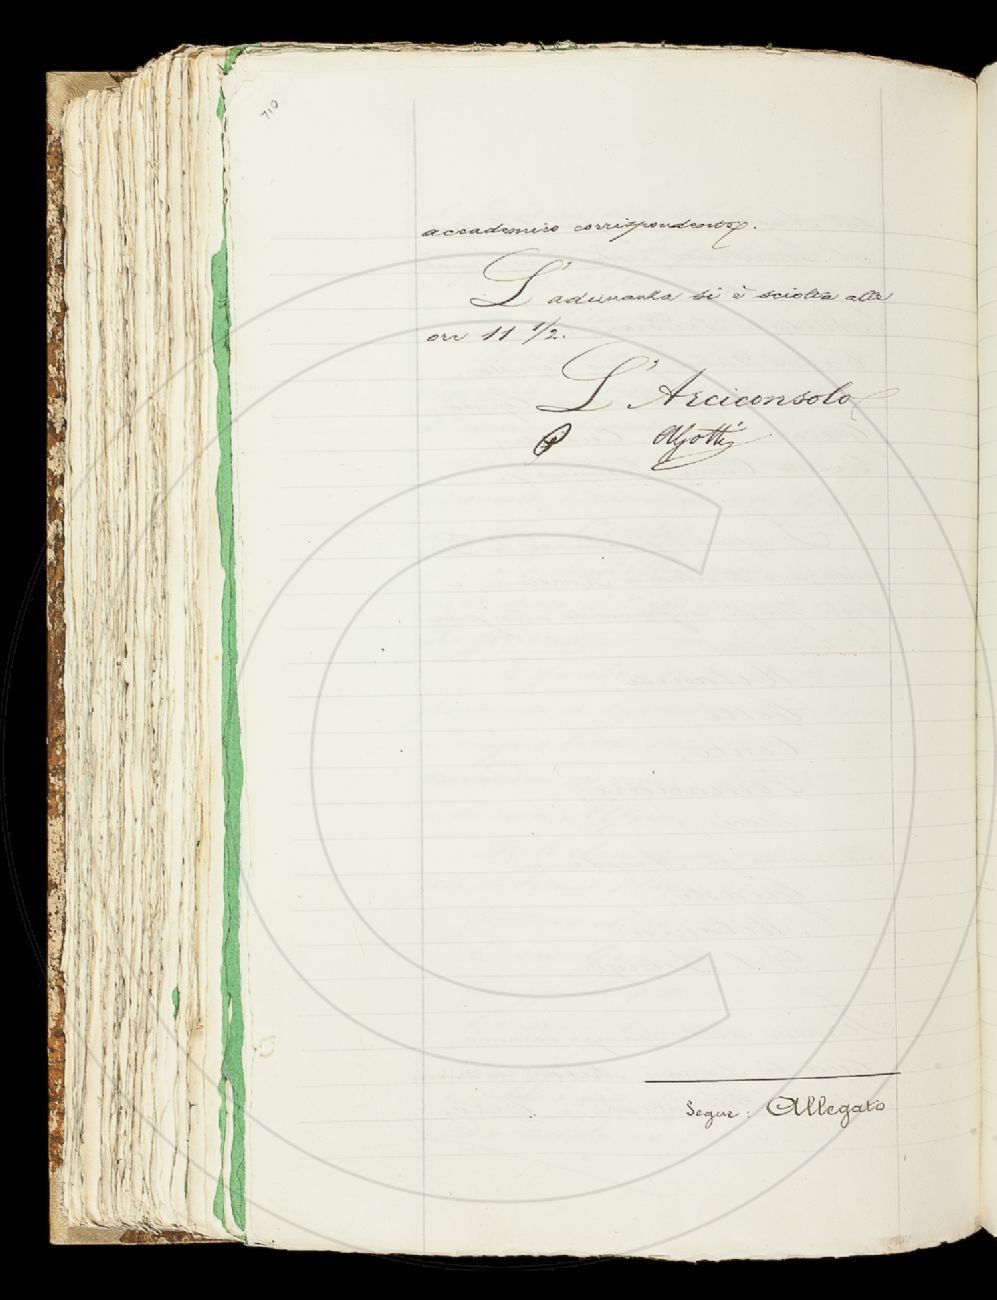 710
accademico corrispondente.
L'adunanza si è sciolta alle
ore 11 1/2.
L'Arciconsolo
AGotti
Segue: Allegato